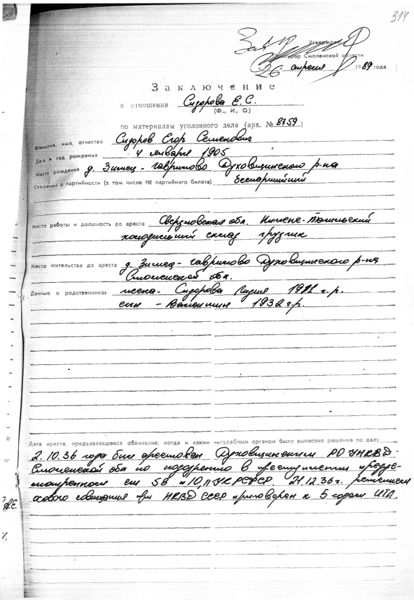 314
Утверждаю
Прокурор Смоленской области
26 апреля 1989 года
Заключение
в отношении Сидорова Е.С.
(Ф., И., О.)
по материалам уголовного дела (арх. № 8759
Фамилия, имя, отчество Сидоров Егор Семенович
Дата и год рождения 4 января 1905
Место рождения д. Гаврилово Духовщинского р-на
Сведения о партийности (в том числе № партийного билета) беспартийный
Место работы и должность до ареста Свердловская обл. Нижне-Тагильский
холодильный склад грузчик
Место жительства до ареста д. Гаврилово Духовщинского р-на
Смоленской обл.
Данные о родственниках жена - Сидорова 1911 г.р.
сын - Валентин 1932 г.р.
Дата ареста, предъявлявшееся обвинение, когда и каким несудебным органом было вынесено решение по делу
2.10.36 года был арестован Духовщинским РО УНКВД
Смоленской обл по подозрению в преступлении преду-
смотренном ст 58 п 10, 11 УК РСФСР. 21.12.36 г. решением
особого совещания при НКВД СССР приговорен к 5 годам ИТЛ.